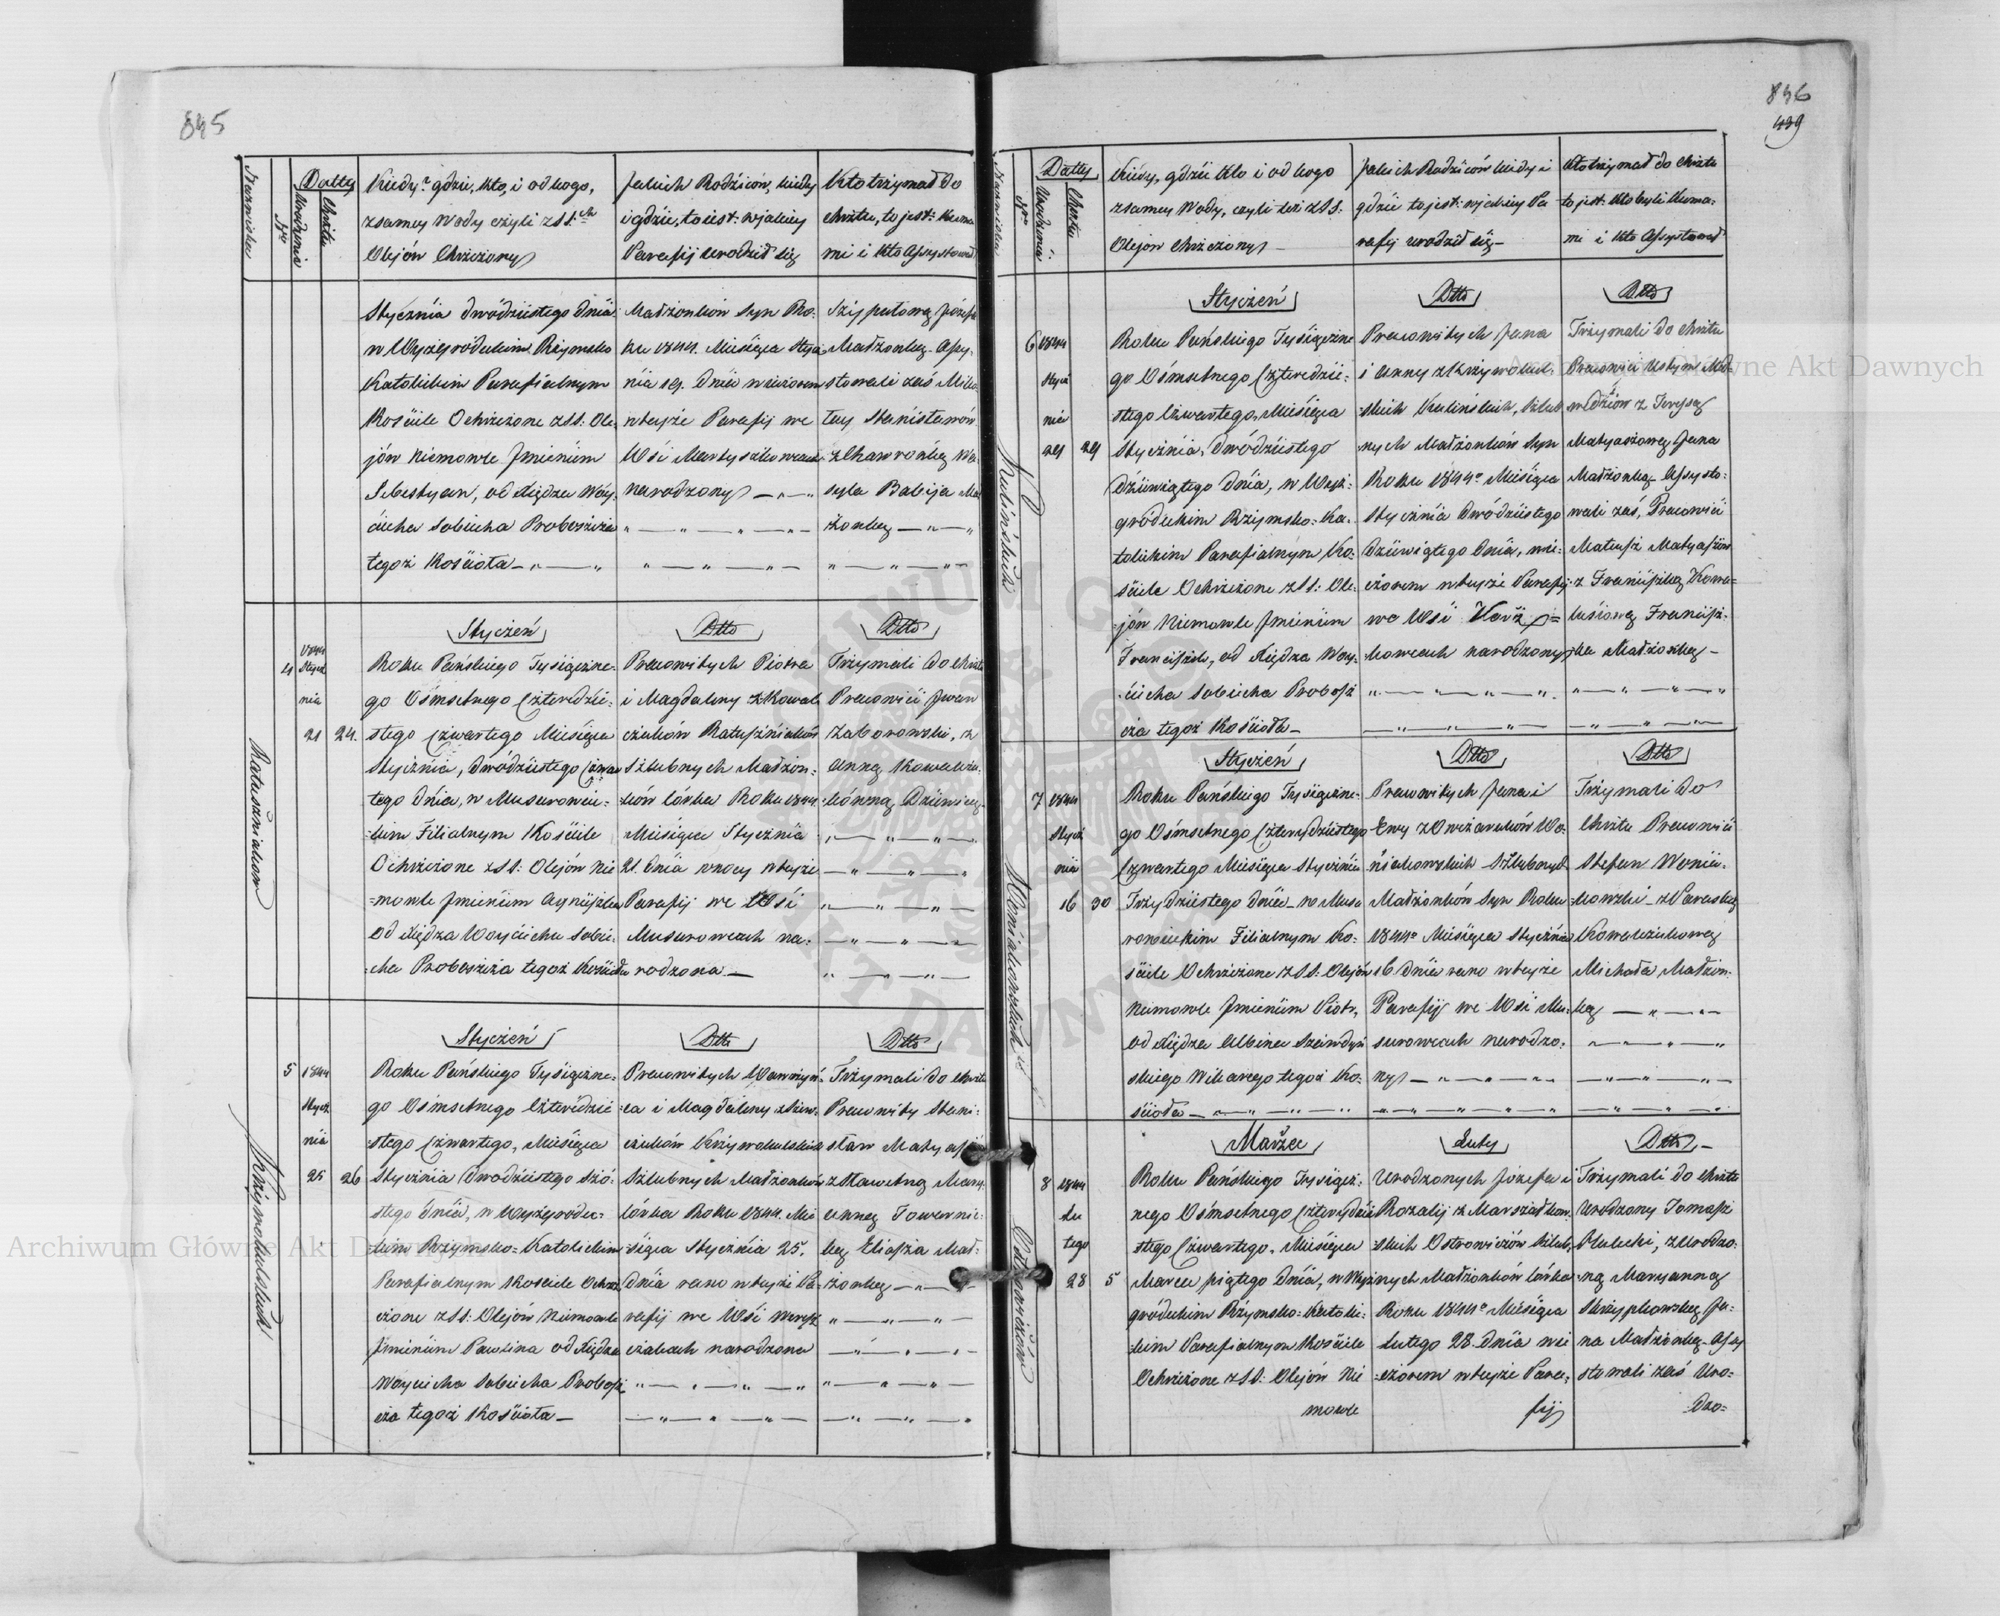 845
Nazwiska
Nro
Datty
Urodzenia
Chrztu
Kiedy, gdzie, kto, i od kogo,
z samey Wody czyli z SS.ch
Olejów Chrzczony
Jakich Rodziców, kiedy
i gdzie, to iest: w jakiey
Parafij urodził się
Kto trzymał do
chrztu, to jest: Kuma
mi i kto Assystował
Stycznia dwódziestego dnia
w Wyżgródeckim Rzymsko
Katolickim Parafialnym
Kościele Ochrzczone z SS: Ole-
jów Niemowle Jmieniem
Sebestyan, od Księdza Woy-
ciecha Sobiecha Proboszcza
tegoż Kościoła
Małżonków Syn Ro-
ku 1844. Miesiąca Stycz
nia dnia wieczorem
w teyże Parafij we
Wsi Martyszkowcach
narodzony
Józefa
Małżonką. Assy-
stowali zaś Miko
łay Stanisławów
z Chawronką Wa-
syla Babija Mał
żonką
Rataszniaków
Styczeń
Dtto
Dtto
4
1844
Stycz
nia
21
24.
Roku Pańskiego Tysiączne-
go Ośmsetnego Czterdzie-
stego Czwartego Miesiąca
Stycznia, dwódziestego Czwar
tego dnia, w Musorowiec-
kim Filialnym Kościele
Ochrzczone z SS: Olejów Nie
=mowle Jmieniem Agnieszka
od Księdza Woyciecha Sobie-
cha Proboszcza tegoż Kościoła
Pracowitych Piotra
i Magdaleny z Kowal
czuków Rataszniaków
Szlubnych Małżon-
ków Córka Roku 1844.
Miesiąca Stycznia
21. dnia w nocy w teyże
Parafij we Wsi
Musurowcach na-
rodzona
Trzymali do chrztu
Pracowici Jwan
Zaborowski, z
Anną Kowalczu-
kówną Dziewicą
Krzywokulskich
Styczeń
Dtto
Dtto
5
1844
Stycz
nia
25
26
Roku Pańskiego Tysiączne-
go Ośmsetnego Czterdzie
stego Czwartego, Miesiąca
Stycznia dwódziestego Szó-
stego dnia, w Wyżgrodec-
kim Rzymsko-Katolickim
Parafialnym Kosciele Ochrz
czone z SS: Olejów Niemowle
Jmieniem Pawlina od Księdza
Woyciecha Sobiecha Probosz
cza tegoż Kościoła
Pracowitych Wawrzyń-
ca i Magdaleny
czuków Krzywokulskich
Szlubnych Małżonków
Córka Roku 1844. Mie
siąca Stycznia 25.
dnia rano w teyże Pa-
rafij we Wsi
narodzona
Trzymali do chrztu
Pracowity Stani-
sław Matyasz
z Sławetną Mary-
anną Towarnic-
ką Eliasza Mał-
żonką
846
439
Nazwiska
Nro
Datty
Urodzenia
Chrztu
Kiedy, gdzie kto i od kogo
z samey Wody, czyli też z SS.
Olejów Chrzczony
Jakich Rodziców kiedy i
gdzie to jest: w jakiey Pa-
rafij urodził się
Kto trzymał do Chrztu
to jest: Kto byli Kuma-
mi i kto Assystował
Kulińskich
Styczeń
Dtto
Dtto
6
1844
Stycz
nia
29
29
Roku Pańskiego Tysiączne
go Ośmsetnego Czterdzie-
stego Czwartego, Miesiąca
Stycznia, dwódziestego
Dziewiątego dnia, w Wyż-
gródeckim Rzymsko-Ka-
tolickim Parafialnym Ko-
ściele Ochrzczone z SS: Ole-
jów Niemowle Jmieniem
Franciszek, od Księdza Woy-
ciecha Sobiecha Probosz
cza tegoż Kościoła
Pracowitych Jana
i Anny z Krzywokul-
skich Kulińskich, Szlub
nych Małżonków Syn
Roku 1844o Miesiąca
Stycznia dwódziestego
Dziewiątego dnia, wie-
czorem w teyże Parafij
we Wsi
kowcach narodzony
Trzymali do Chrztu
Pracowici
z Teressą
Matyaszową Jana
Małżonką. Assysto-
wali zaś, Pracowici
Mateusz Matyaszów
z Franciszką Kowa-
lusiową Francisz-
ka Małżonką
Woniakowskich
Styczeń
Dtto
Dtto
7
1844
Stycz
nia
16
30
Roku Pańskiego Tysiączne-
go Ośmsetnego Czterydziestego
Czwartego Miesiąca Stycznia
Trzydziestego dnia w Musu
rowieckim Filialnym Ko-
ściele Ochrzczone z SS: Olejów
Niemowle Jmieniem Piotr,
od Księdza Albina
skiego Wikarego tegoż Ko-
ścioła
Pracowitych Jana i
Ewy z Owczaruków Wo-
niakowskich Szlubnych
Małżonków Syn Roku
1844o Miesiąca Stycznia
16 dnia rano w teyże
Parafij we Wsi Mu-
surowcach narodzo-
ny
Trzymali do
Chrztu Pracowici
Stefan Wonia-
kowski z Paraską
Kowalczukową
Michała Małżon-
ką
Ostrowiczów
Marzec
Luty
Dtto
8
1844
Lu
tego
28
5
Roku Pańskiego Tysiącz-
nego Ośmsetnego Czterydzie
stego Czwartego, Miesiąca
Marca piątego dnia, w Wyż
gródeckim Rzymsko-Katolic-
kim Parafialnym Kościele
Ochrzczone z SS: Olejów Nie
mowle
Urodzonych Józefa i
Rozalij z Marszałkow-
skich Ostrowiczów Szlub
nych Małżonków Córka
Roku 1844o Miesiąca
Lutego 28. dnia wie
czorem w teyże Para-
fij
Trzymali do Chrztu
Urodzony Tomasz
z Urodzo-
ną Maryanną
Skrzypkowską Ja-
na Małżonką. Assy
stowali zaś Uro-
dzo-
Archiwum Główne Akt Dawnych
Archiwum Główne Akt Dawnych